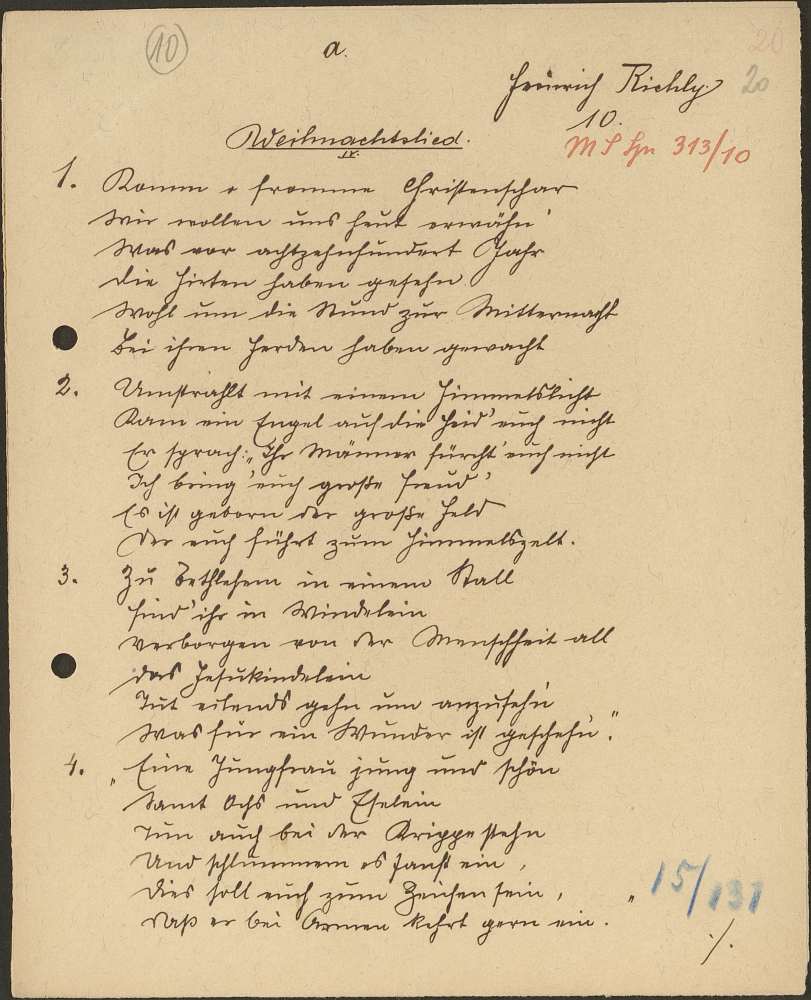 10
a.
20
Heinrich Richly
20
10.
Weihnachtslied.
IV.
MS Hn 313/10
1. Komm o fromme Christenschar
Wir wollen uns heut erwähn'
Was vor achtzehnhundert Jahr
Die Hirten haben gesehn
Wohl um die Stund zur Mitternacht
Bei ihren Herden haben gewacht
2. Umstrahlt mit einem Himmelslicht
Kam ein Engel auf die Heid' euch nicht
Er sprach: „Ihr Männer fürcht' euch nicht
Ich bring' euch große Freud'
Es ist geborn der große Held
Der euch führt zum Himmelszelt.
3. Zu Bethlehem in einem Stall
Find' ihr in Windelein
Verborgen von der Menschheit all
Das Jesukindelein
Tut eilends gehn um anzusehn
Was für ein Wunder ist geschehn."
4. „Eine Jungfrau jung und schön
Samt Ochs und Eselein
Tun auch bei der Krippe stehn
Und schlummern es sanft ein,
Dies soll euch zum Zeichen sein,
Daß er bei Armen kehrt gern ein."
15/131
./.